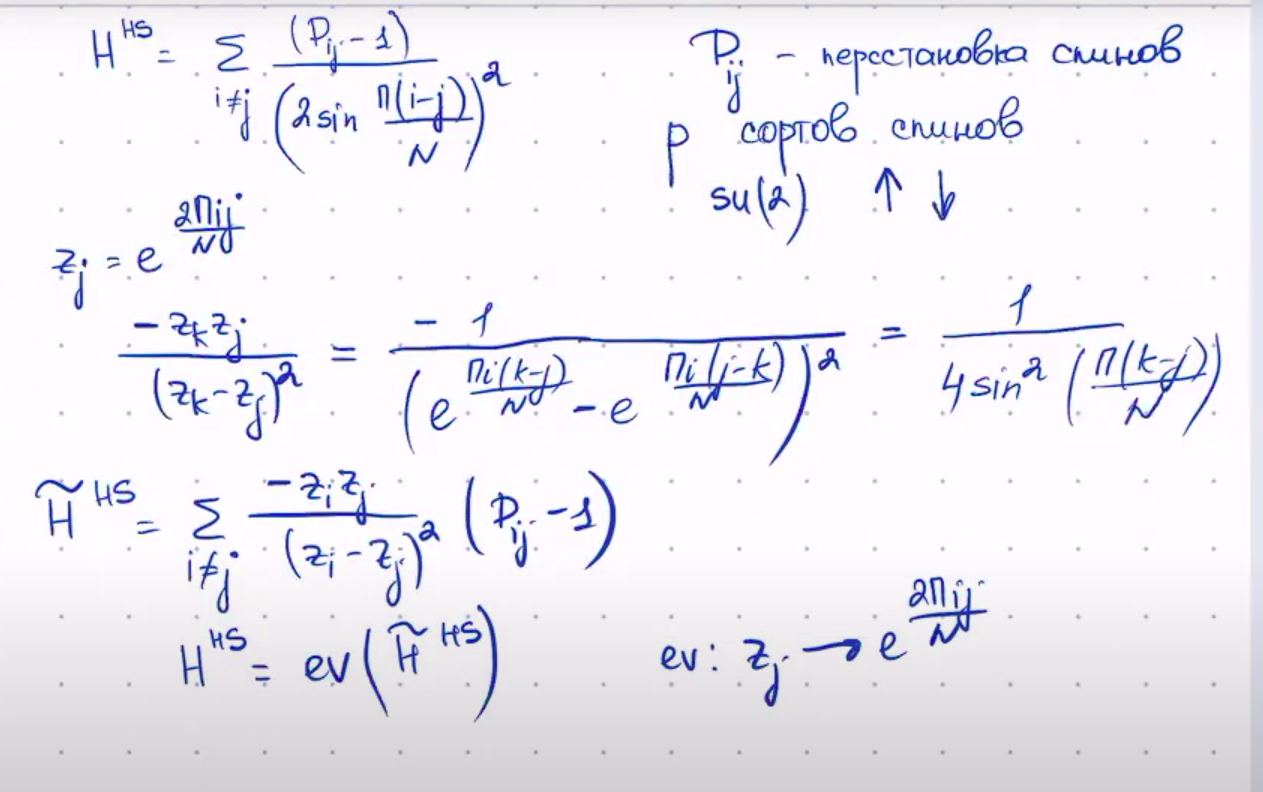 H^{HS} = Σ_{i≠j} (P_{ij} - 1) / (2 sin π(i-j)/N)^2
P_{ij} - перестановка спинов
p сортов спинов
su(2) ↑ ↓
z_j = e^{2πij/N}
-z_k z_j / (z_k - z_j)^2 = -1 / (e^{πi(k-j)/N} - e^{πi(j-k)/N})^2 = 1 / 4 sin^2 (π(k-j)/N)
H̃^{HS} = Σ_{i≠j} -z_i z_j / (z_i - z_j)^2 (P_{ij} - 1)
H^{HS} = ev(H̃^{HS}) ev: z_j → e^{2πij/N}